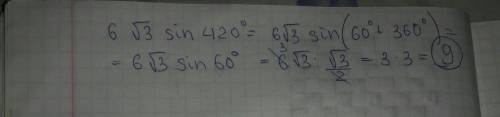 6 √3 sin 420° = 6√3 sin(60° + 360°) =
= 6√3 sin 60° = 6̸³√3 · √3/2 = 3 · 3 = 9